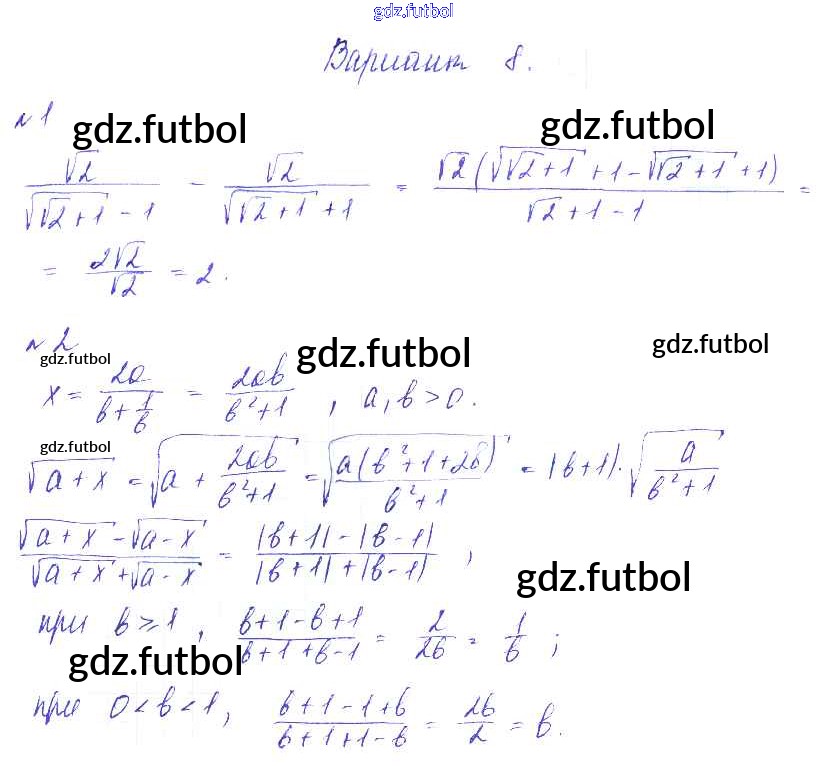 gdz.futbol
Вариант 8.
№1
gdz.futbol gdz.futbol
√2/(√(√2+1) - 1) - √2/(√(√2+1) + 1) = √2(√(√2+1) + 1 - √(√2+1) + 1)/(√2 + 1 - 1) =
= 2√2/√2 = 2.
№2
gdz.futbol gdz.futbol gdz.futbol
x = 2a/(b + 1/b) = 2ab/(b²+1), a, b > 0.
gdz.futbol
√(a + x) = √(a + 2ab/(b²+1)) = √(a(b²+1+2b)/(b²+1)) = |b+1|·√(a/(b²+1))
(√(a+x) - √(a-x))/(√(a+x) + √(a-x)) = (|b+1| - |b-1|)/(|b+1| + |b-1|),
gdz.futbol
при b ≥ 1, (b+1-b+1)/(b+1+b-1) = 2/2b = 1/b;
gdz.futbol
при 0 < b < 1, (b+1-1+b)/(b+1+1-b) = 2b/2 = b.